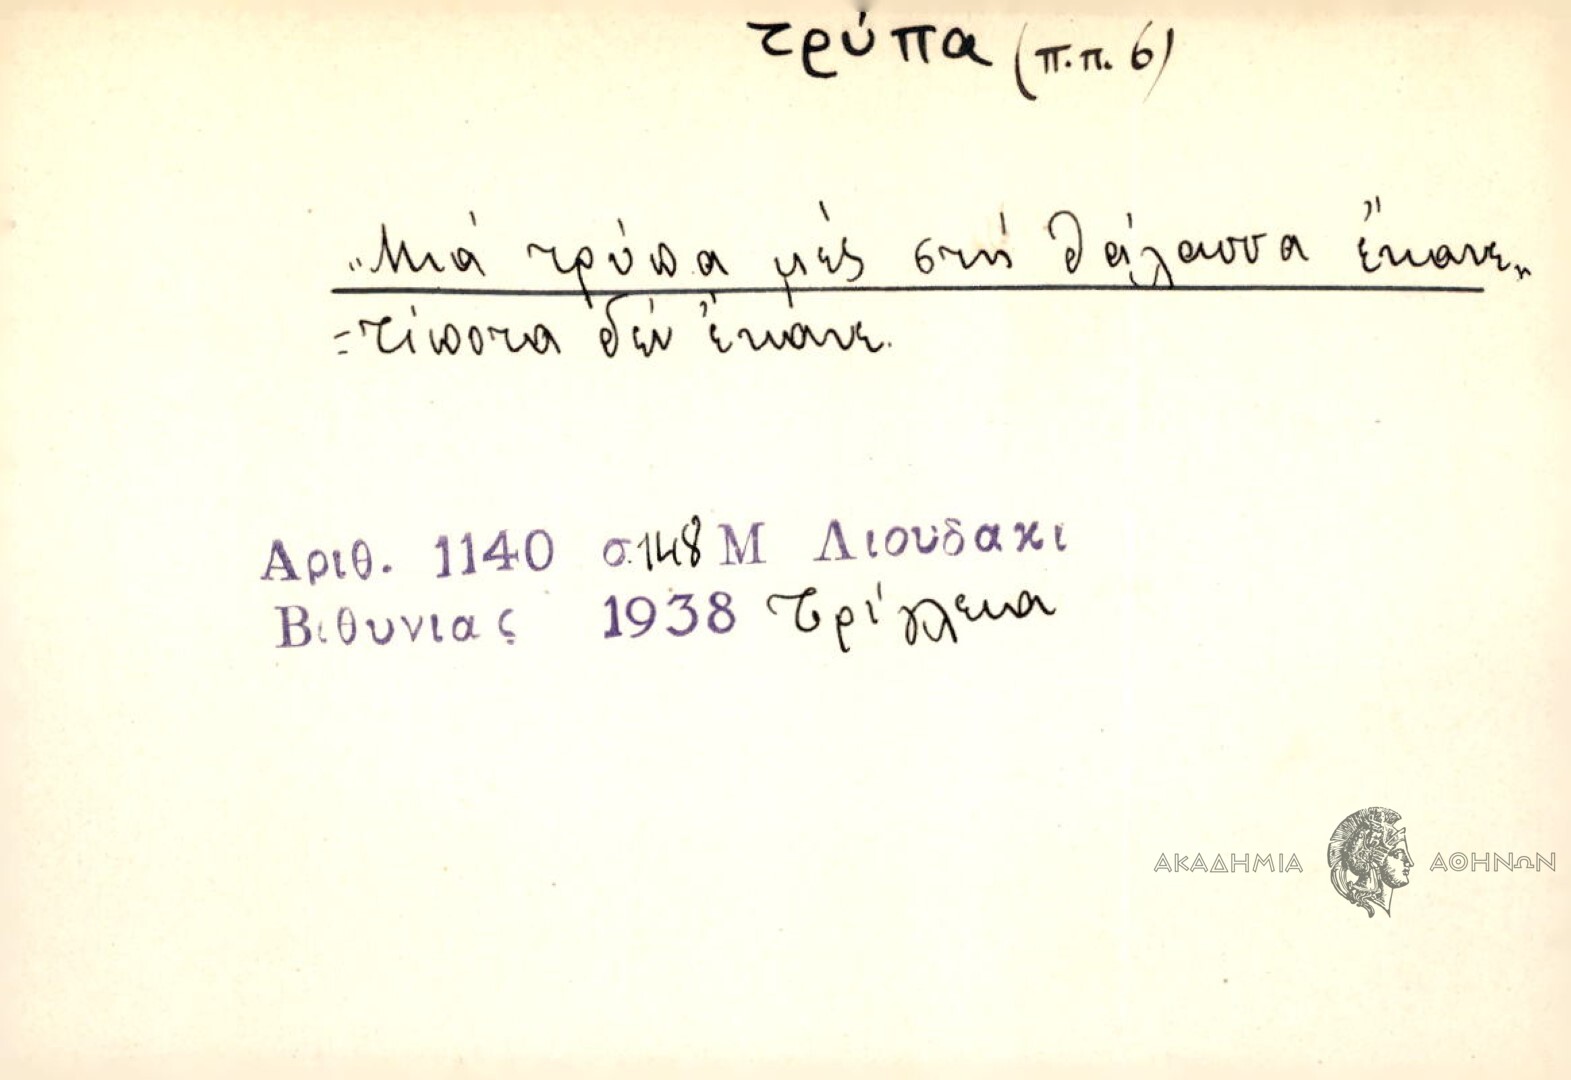 τρύπα (π.π. 6)
"Μιά τρύπα μές στή θάλασσα ἔκανε"
=τίποτα δέν ἔκανε.
Αριθ. 1140 σ.148 Μ Λιουδακι
Βιθυνιας 1938 Τρίγλεια
ΑΚΑΔΗΜΙΑ ΑΘΗΝΩΝ